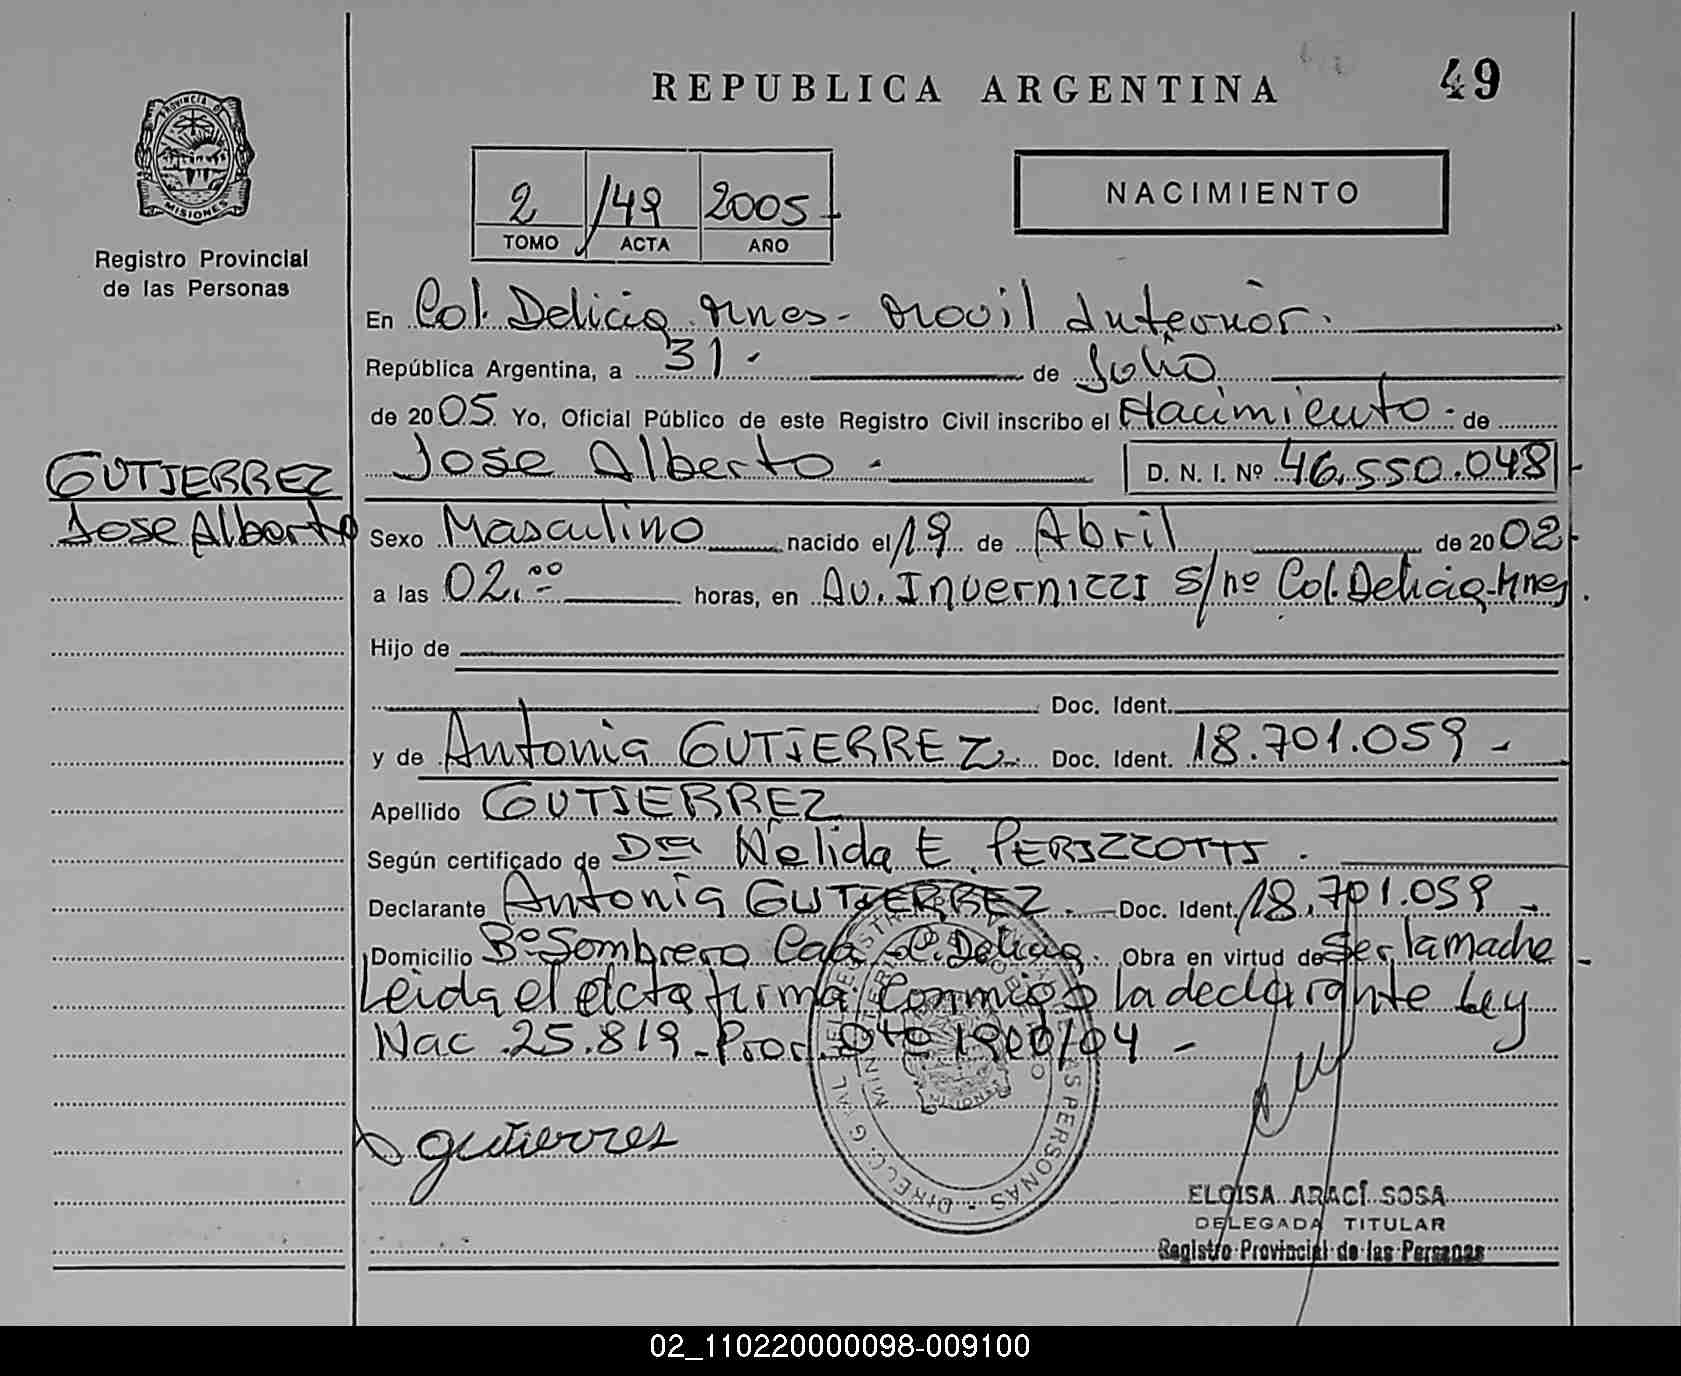 REPUBLICA ARGENTINA
49
PROVINCIA DE
MISIONES
Registro Provincial
de las Personas
2 /49 2005
TOMO ACTA AÑO
NACIMIENTO
En Col. Delicia Mnes- Movil Interior.
República Argentina, a 31 - de Julio
de 2005. Yo, Oficial Público de este Registro Civil inscribo el Nacimiento - de
Jose Alberto - D. N. I. Nº 46.550.048
GUTIERREZ
Jose Alberto
Sexo Masculino nacido el 19 de Abril de 2002
a las 02.00 horas, en Av. Invernizzi s/nº Col. Delicia-Mnes.
Hijo de
Doc. Ident.
y de Antonia GUTIERREZ. Doc. Ident. 18.701.059 -
Apellido GUTIERREZ
Según certificado de Dra Nélida E PERIZZOTTI.
Declarante Antonia GUTIERREZ. Doc. Ident. 18.701.059 -
Domicilio Bº Sombrero Caa C. Delicia. Obra en virtud de Ser la madre -
Leida el Acta firma Conmigo la declarante Ley
Nac. 25.819 - Pror. Dto 1900/04 -
gutierres
ELOISA ARACÍ SOSA
DELEGADA TITULAR
Registro Provincial de las Personas
02_110220000098-009100